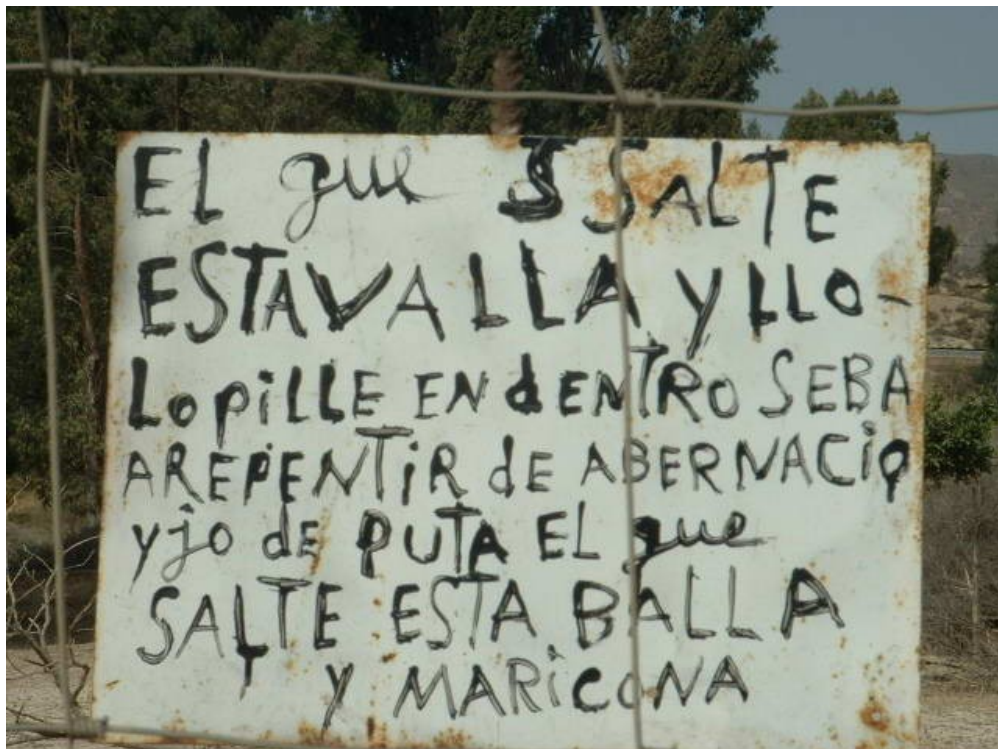 EL que S SALTE
ESTA VALLA Y LLO-
LO PiLLE EN dENTRO SEBA
AREPENTiR dE ABERNACiO
yjo de PUTA EL que
SALTE ESTA BALLA
Y MARiCONA